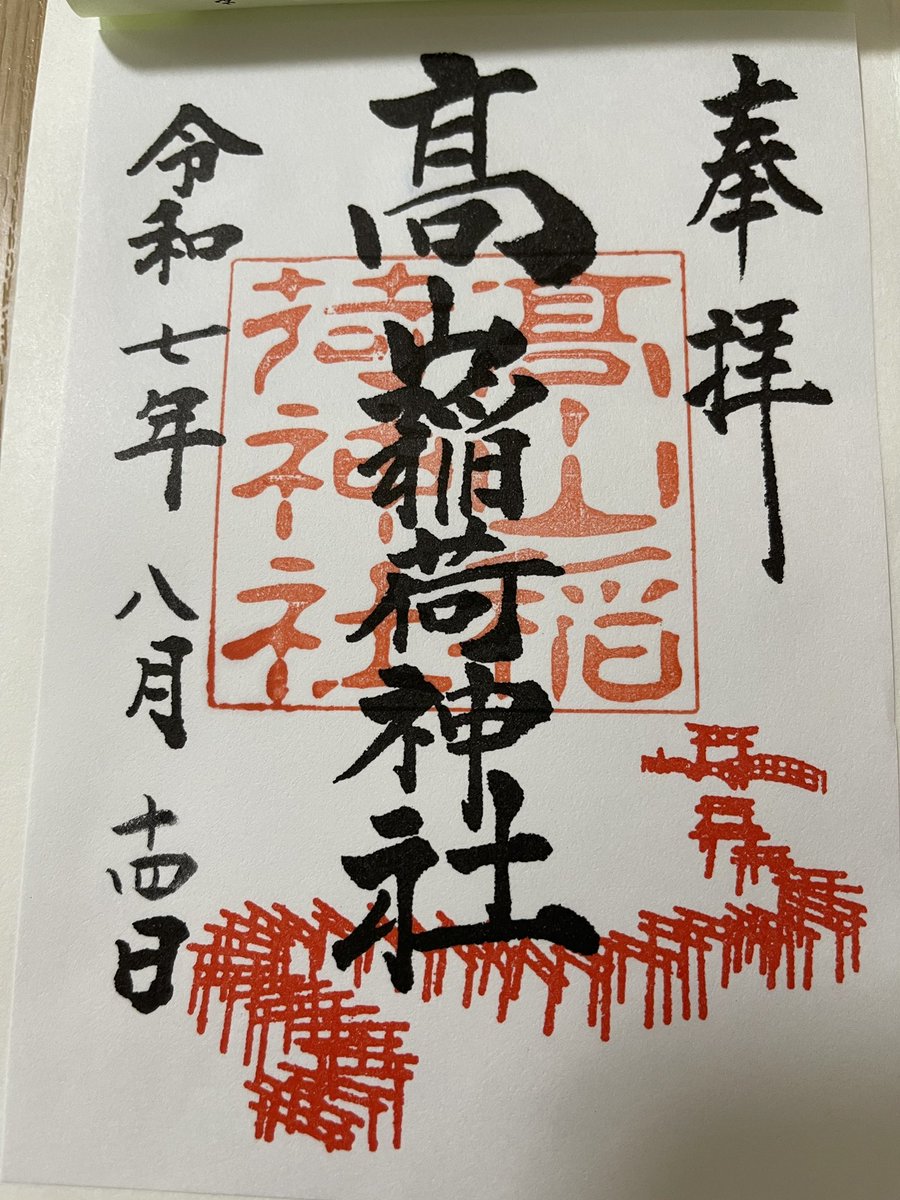 奉拝
髙山稲荷神社
髙山稲
荷神社
令和七年八月十四日